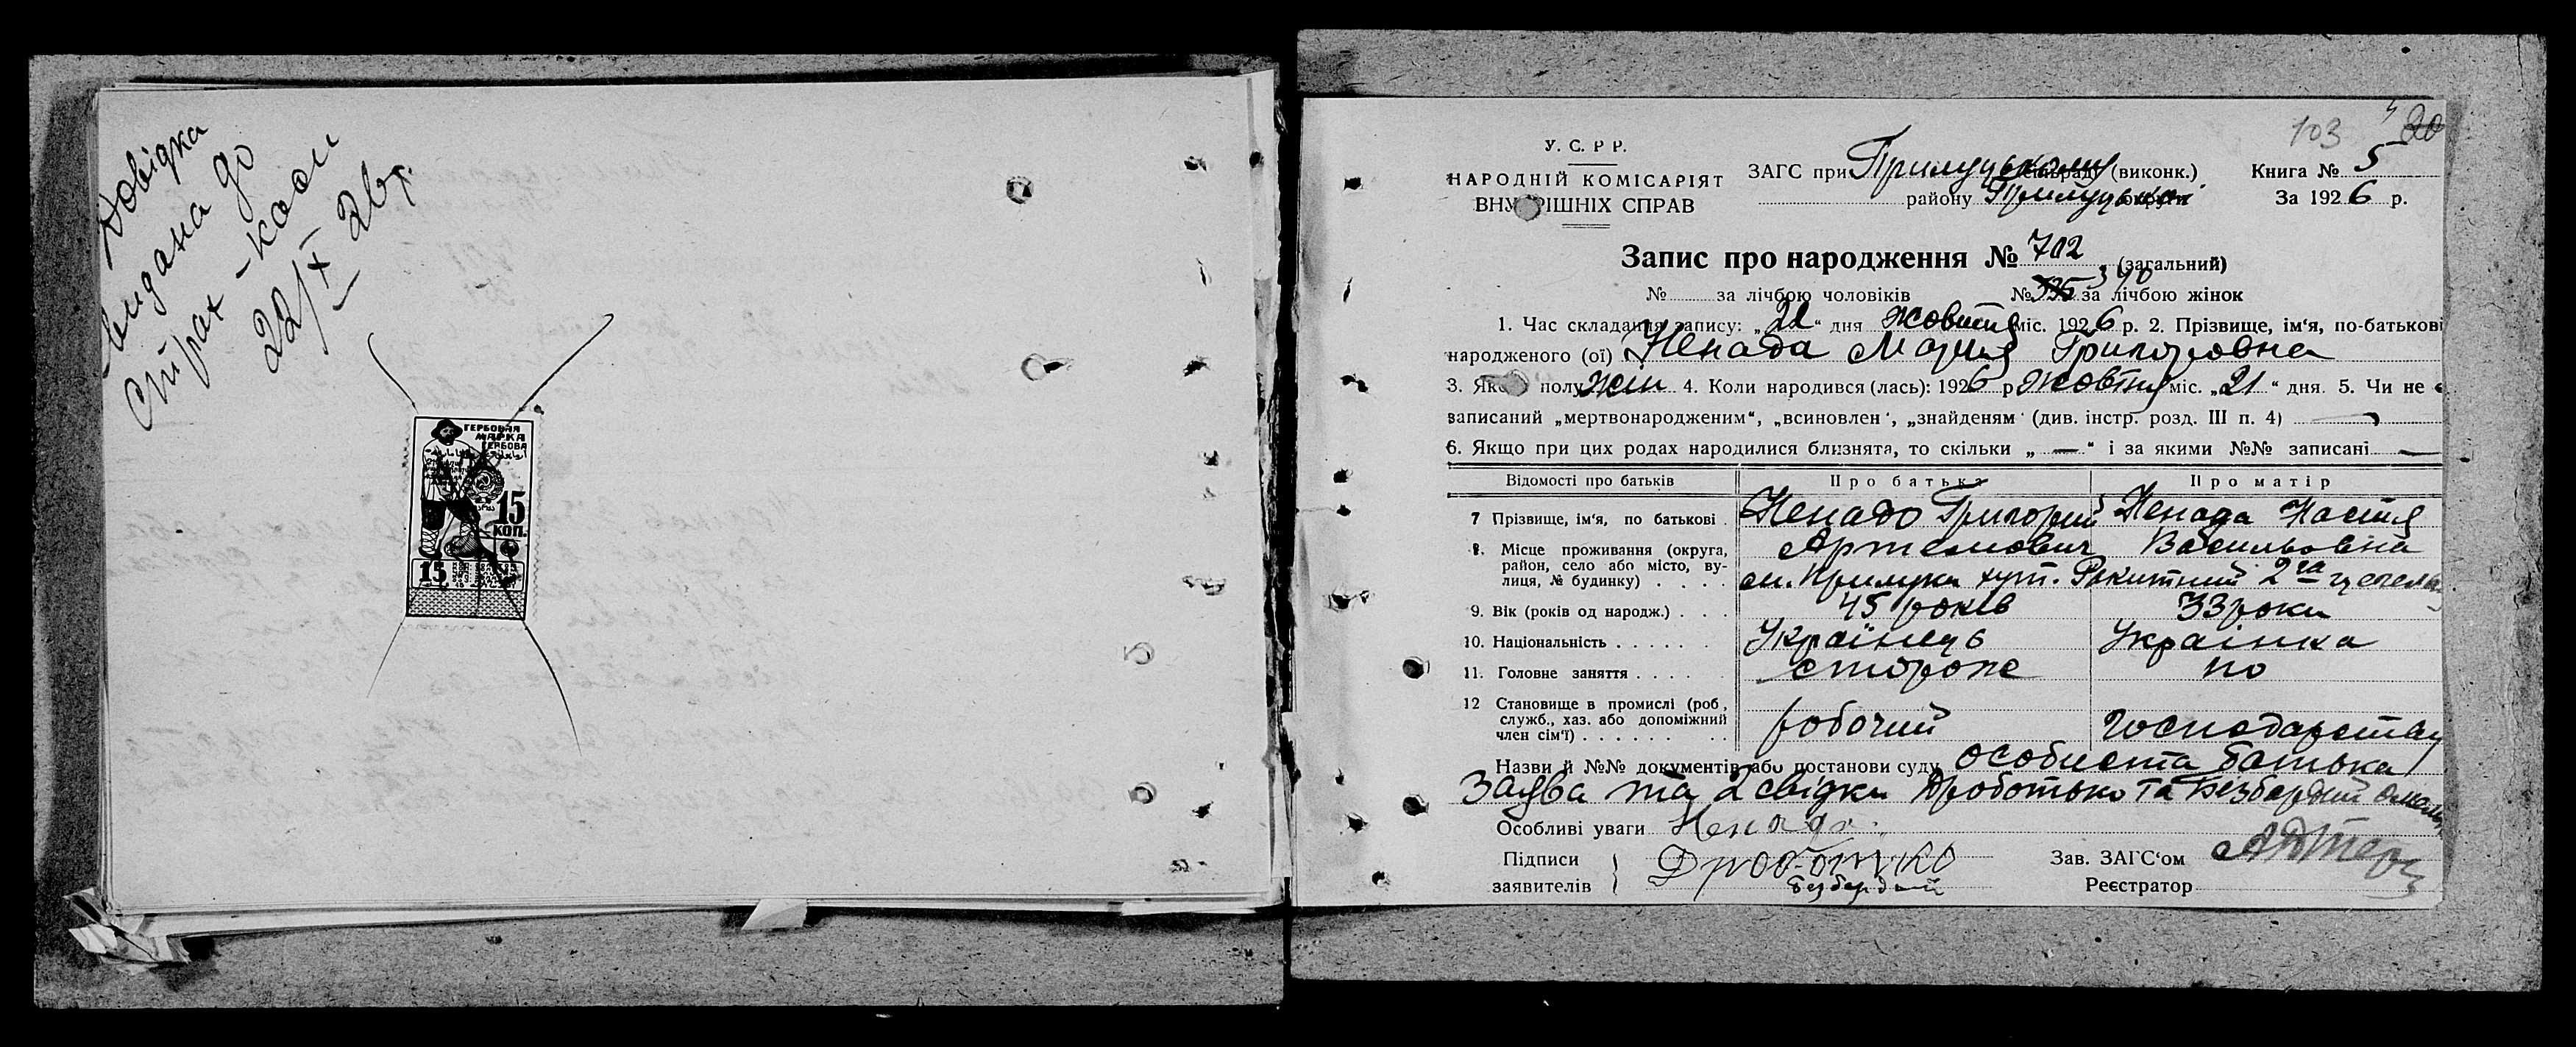 Довідка
видана до
страх-каси
22/X 26 р.
ГЕРБОВАЯ
МАРКА
ГЕРБОВА
15
КОП.
15
103
20
У. С. Р Р.
НАРОДНІЙ КОМІСАРІЯТ
ВНУТРІШНІХ СПРАВ
ЗАГС при Прилуцькому (виконк.)
району Прилуцької
Книга № 5
За 1926 р.
Запис про народження № 702 (загальний)
№ за лічбою чоловіків № 340 за лічбою жінок
1. Час складання запису: „22“ дня жовтня міс. 1926 р. 2. Прізвище, ім‘я, по-батькові
народженого (ої) Ненада Мария Григоровна
3. Якої полу жін 4. Коли народився (лась): 1926 р. жовтня міс. „21“ дня. 5. Чи не є
записаний „мертвонародженим“, „всиновлен‘, „знайденям‘ (див. інстр. розд. III п. 4) —
6. Якщо при цих родах народилися близнята, то скільки „—“ і за якими №№ записані —
Відомості про батьків Про батька Про матір
7 Прізвище, ім‘я, по батькові . Ненадо Григорий Ненада Настя
Артемович Васильовна
8. Місце проживання (округа,
район, село або місто, ву-
лиця, № будинку) . . . . м. Прилуки хут. Рокитний 2га
9. Вік (років од народж.) . . . 45 років 33 роки
10. Національність . . . . . . Українець Українка
11. Головне заняття . . . . стороже по
12 Становище в промислі (роб,
служб., хаз. або допоміжний
член сім‘ї) . . . . . . . . робочий господарству
Назви й №№ документів або постанови суду особиста батька
Заява та 2 свідки Дроботько та Безбордий
Особливі уваги Ненадо
Підписи
заявителів
Дроботко
Безбордий
Зав. ЗАГС‘ом
Реєстратор